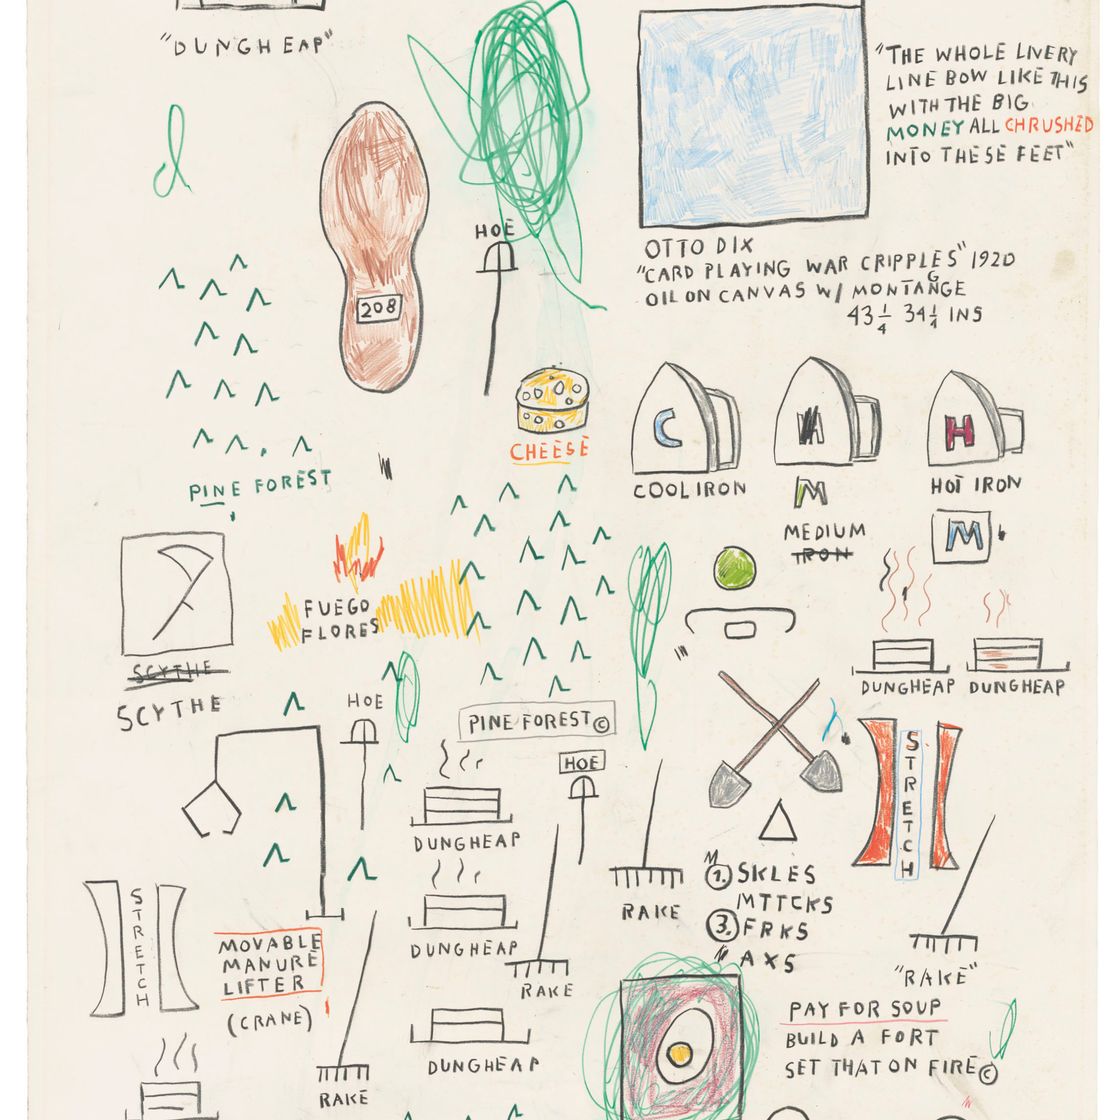 "DUNGHEAP"
"THE WHOLE LIVERY
LINE BOW LIKE THIS
WITH THE BIG
MONEY ALL CHRUSHED
INTO THESE FEET"
HOE
OTTO DIX
"CARD PLAYING WAR CRIPPLES" 1920
OIL ON CANVAS W/ MONTANGE
G
43 1/4 34 1/4 INS
208
CHEESE
C
M
H
COOL IRON
M
HOT IRON
PINE FOREST
MEDIUM
IRON
M
FUEGO
FLORES
SCYTHE
SCYTHE
HOE
PINE FOREST©
DUNGHEAP
DUNGHEAP
STRETCH
HOE
DUNGHEAP
RAKE
M
1. SKLES
MTTCKS
3. FRKS
AXS
STRETCH
MOVABLE
MANURE
LIFTER
(CRANE)
DUNGHEAP
RAKE
"RAKE"
DUNGHEAP
RAKE
PAY FOR SOUP
BUILD A FORT
SET THAT ON FIRE©